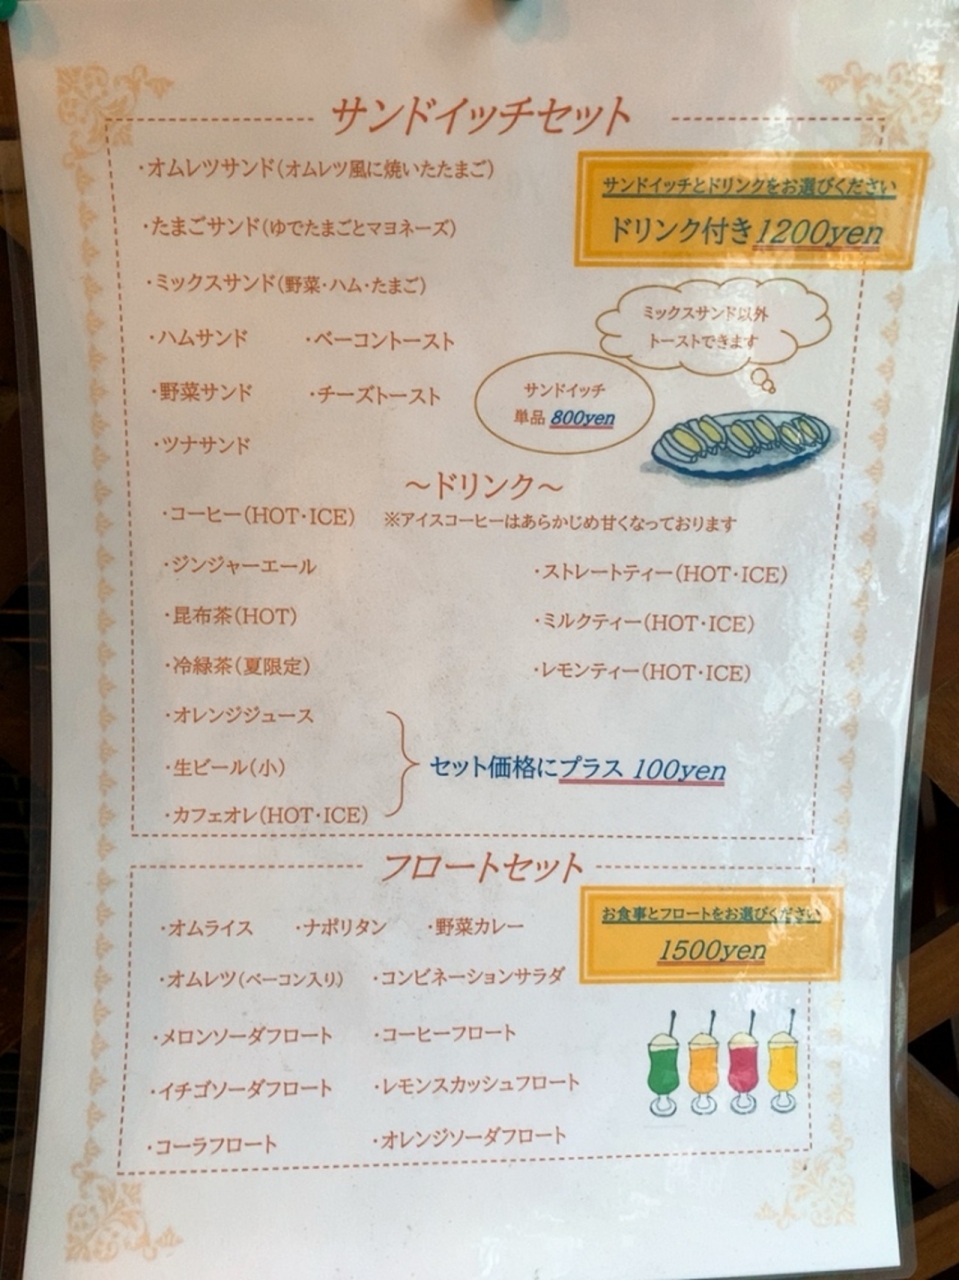 サンドイッチセット
・オムレツサンド(オムレツ風に焼いたたまご)
サンドイッチとドリンクをお選びください
ドリンク付き1200yen
・たまごサンド(ゆでたまごとマヨネーズ)
・ミックスサンド(野菜・ハム・たまご)
ミックスサンド以外
トーストできます
・ハムサンド ・ベーコントースト
・野菜サンド ・チーズトースト
サンドイッチ
単品 800yen
・ツナサンド
～ドリンク～
・コーヒー(HOT・ICE) ※アイスコーヒーはあらかじめ甘くなっております
・ジンジャーエール ・ストレートティー(HOT・ICE)
・昆布茶(HOT) ・ミルクティー(HOT・ICE)
・冷緑茶(夏限定) ・レモンティー(HOT・ICE)
・オレンジジュース
・生ビール(小)
・カフェオレ(HOT・ICE)
セット価格にプラス 100yen
フロートセット
お食事とフロートをお選びください
1500yen
・オムライス ・ナポリタン ・野菜カレー
・オムレツ(ベーコン入り) ・コンビネーションサラダ
・メロンソーダフロート ・コーヒーフロート
・イチゴソーダフロート ・レモンスカッシュフロート
・コーラフロート ・オレンジソーダフロート